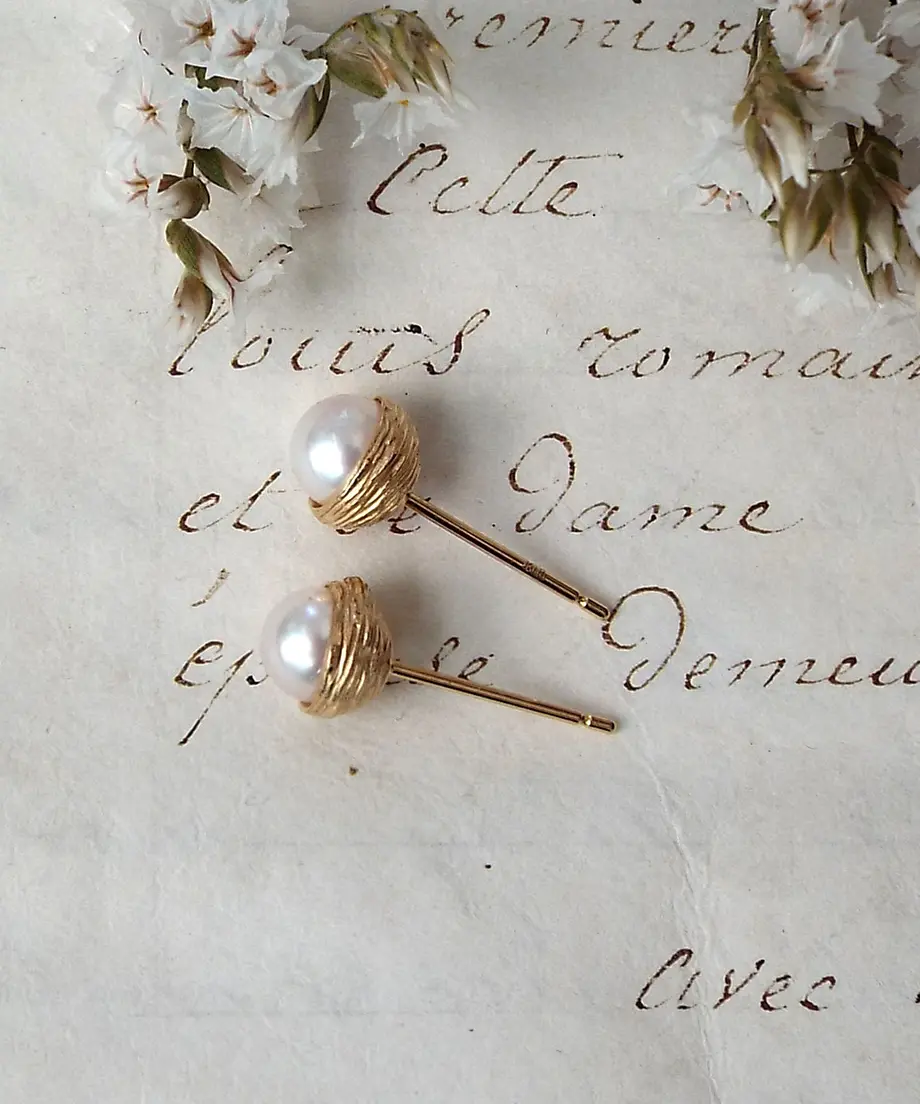 remier
Cette
Louis romain
et dame
ép de Demeu
Avec